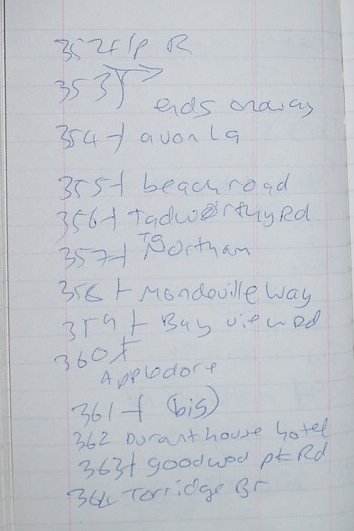 352 f/p R
353 f
ends onaway
354 f avon La
355 f beach road
356 f Tadworthy Rd
To
357 f Northam
358 f Mondeville Way
359 f Bay view Rd
360 f
Appledore
361 f (bis)
362 Durant house hotel
363 f goodwod pk Rd
364 Torridge Br